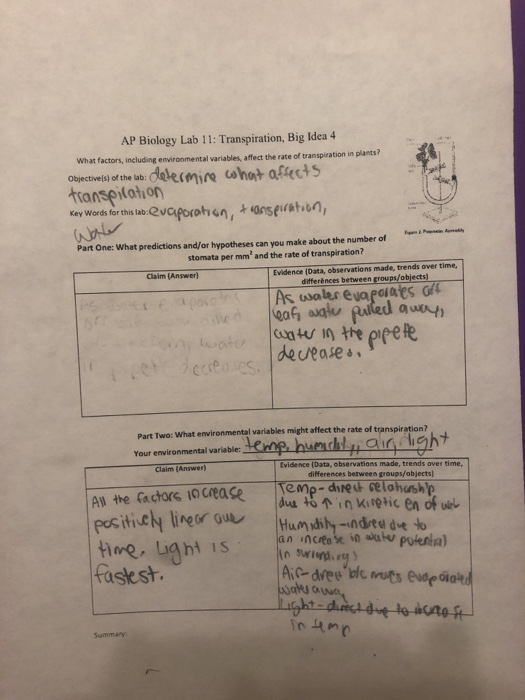 AP Biology Lab 11: Transpiration, Big Idea 4
What factors, including environmental variables, affect the rate of transpiration in plants?
Objective(s) of the lab: determine what affects
transpiration
Key Words for this lab: evaporation, transpiration,
water
Part One: What predictions and/or hypotheses can you make about the number of
stomata per mm² and the rate of transpiration?
Claim (Answer)
water
decreases.
Evidence (Data, observations made, trends over time,
differences between groups/objects)
As water evaporates off
leaf, water pulled away,
water in the pipette
decreases.
Part Two: What environmental variables might affect the rate of transpiration?
Your environmental variable: temp, humidity, air, light
Claim (Answer)
All the factors increase
positively linear over
time. Light is
fastest.
Evidence (Data, observations made, trends over time,
differences between groups/objects)
Temp - direct relationship
due to ↑ in kinetic en of
Humidity - due to
an increase in water potential
in
Air - b/c moves evaporated
water away
Light - direct due to
in temp
Summary: